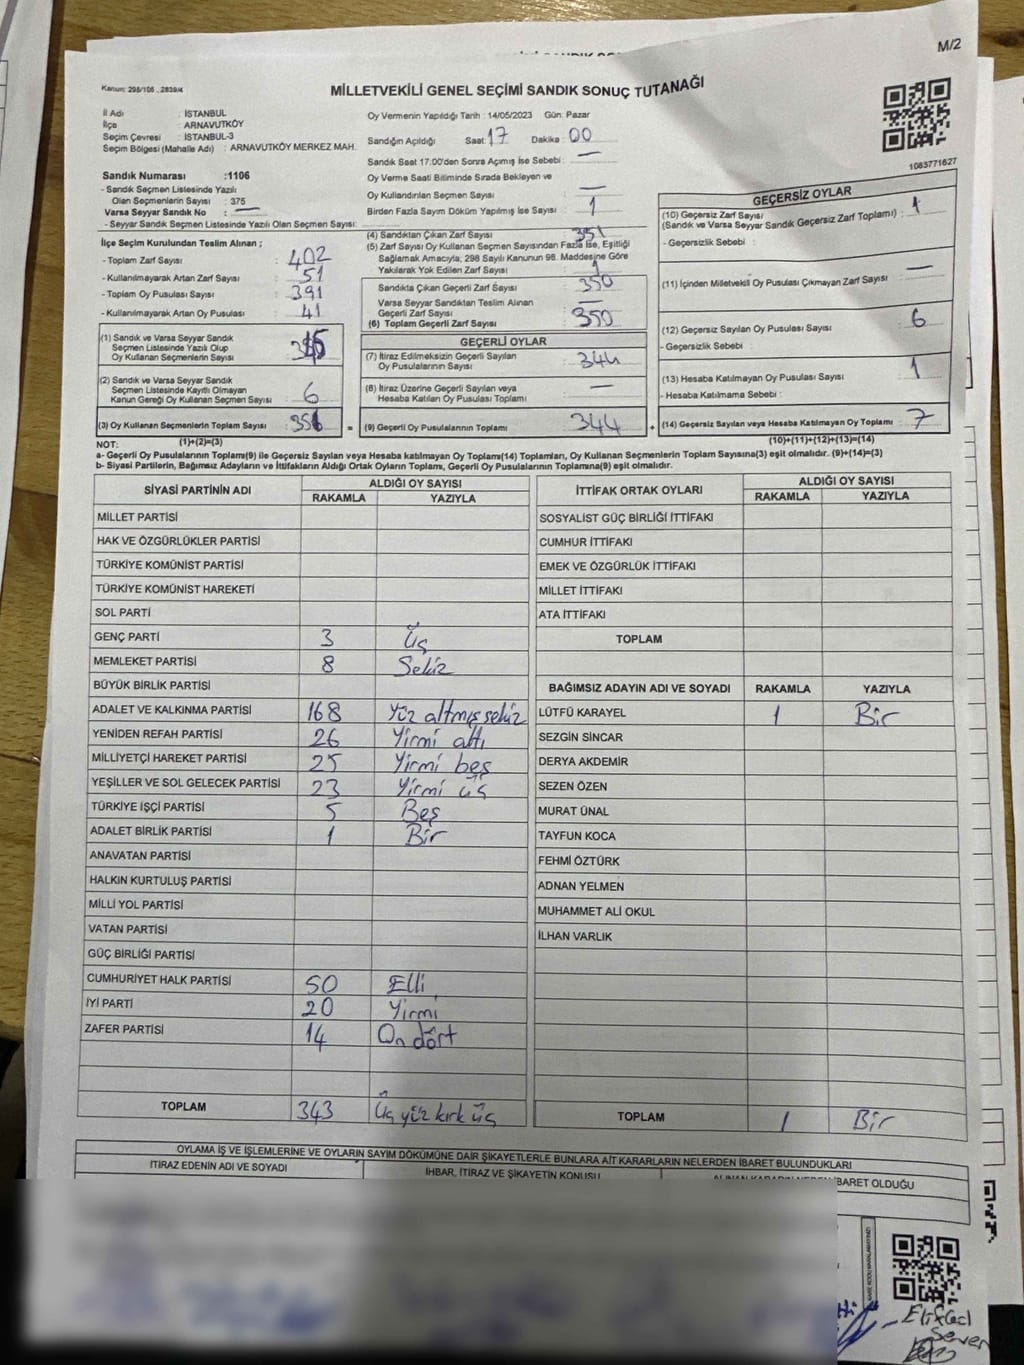 M/2
Kanun: 298/105 , 2839/4
MİLLETVEKİLİ GENEL SEÇİMİ SANDIK SONUÇ TUTANAĞI
1083771627
İl Adı : İSTANBUL
İlçe : ARNAVUTKÖY
Seçim Çevresi : İSTANBUL-3
Seçim Bölgesi (Mahalle Adı) : ARNAVUTKÖY MERKEZ MAH.
Sandık Numarası :1106
- Sandık Seçmen Listesinde Yazılı
Olan Seçmenlerin Sayısı : 375
Varsa Seyyar Sandık No : —
- Seyyar Sandık Seçmen Listesinde Yazılı Olan Seçmen Sayısı:
İlçe Seçim Kurulundan Teslim Alınan ;
- Toplam Zarf Sayısı : 402
- Kullanılmayarak Artan Zarf Sayısı : 51
- Toplam Oy Pusulası Sayısı : 391
- Kullanılmayarak Artan Oy Pusulası : 41
(1) Sandık ve Varsa Seyyar Sandık
Seçmen Listesinde Yazılı Olup
Oy Kullanan Seçmenlerin Sayısı :
(2) Sandık ve Varsa Seyyar Sandık
Seçmen Listesinde Kayıtlı Olmayan
Kanun Gereği Oy Kullanan Seçmen Sayısı : 6
(3) Oy Kullanan Seçmenlerin Toplam Sayısı : 351 =
Oy Vermenin Yapıldığı Tarih : 14/05/2023 Gün: Pazar
Sandığın Açıldığı Saat: 17 Dakika : 00
Sandık Saat 17:00'den Sonra Açımış İse Sebebi : —
Oy Verme Saati Bitiminde Sırada Bekleyen ve
Oy Kullandırılan Seçmen Sayısı : —
Birden Fazla Sayım Döküm Yapılmış İse Sayısı : 1
(4) Sandıktan Çıkan Zarf Sayısı : 351
(5) Zarf Sayısı Oy Kullanan Seçmen Sayısından Fazla İse, Eşitliği
Sağlamak Amacıyla; 298 Sayılı Kanunun 98. Maddesine Göre
Yakılarak Yok Edilen Zarf Sayısı : 1
Sandıkta Çıkan Geçerli Zarf Sayısı : 350
Varsa Seyyar Sandıktan Teslim Alınan
Geçerli Zarf Sayısı : —
(6) Toplam Geçerli Zarf Sayısı : 350
GEÇERLİ OYLAR
(7) İtiraz Edilmeksizin Geçerli Sayılan
Oy Pusulalarının Sayısı : 344
(8) İtiraz Üzerine Geçerli Sayılan veya
Hesaba Katılan Oy Pusulası Toplamı : —
(9) Geçerli Oy Pusulalarının Toplamı : 344 +
GEÇERSİZ OYLAR
(10) Geçersiz Zarf Sayısı : 1
(Sandık ve Varsa Seyyar Sandık Geçersiz Zarf Toplamı)
- Geçersizlik Sebebi :
(11) İçinden Milletvekili Oy Pusulası Çıkmayan Zarf Sayısı : —
(12) Geçersiz Sayılan Oy Pusulası Sayısı : 6
- Geçersizlik Sebebi :
(13) Hesaba Katılmayan Oy Pusulası Sayısı : 1
- Hesaba Katılmama Sebebi :
(14) Geçersiz Sayılan veya Hesaba Katılmayan Oy Pusulası Toplamı : 7
NOT: (1)+(2)=(3) (10)+(11)+(12)+(13)=(14)
a- Geçerli Oy Pusulalarının Toplamı(9) ile Geçersiz Sayılan veya Hesaba katılmayan Oy Pusulası Toplamı(14) Toplamları, Oy Kullanan Seçmenlerin Toplam Sayısına(3) eşit olmalıdır. (9)+(14)=(3)
b- Siyasi Partilerin, Bağımsız Adayların ve İttifakların Aldığı Ortak Oyların Toplamı, Geçerli Oy Pusulalarının Toplamına(9) eşit olmalıdır.
SİYASİ PARTİNİN ADI ALDIĞI OY SAYISI
RAKAMLA YAZIYLA
MİLLET PARTİSİ
HAK VE ÖZGÜRLÜKLER PARTİSİ
TÜRKİYE KOMÜNİST PARTİSİ
TÜRKİYE KOMÜNİST HAREKETİ
SOL PARTİ
GENÇ PARTİ 3 Üç
MEMLEKET PARTİSİ 8 Sekiz
BÜYÜK BİRLİK PARTİSİ
ADALET VE KALKINMA PARTİSİ 168 Yüz altmış sekiz
YENİDEN REFAH PARTİSİ 26 Yirmi altı
MİLLİYETÇİ HAREKET PARTİSİ 25 Yirmi beş
YEŞİLLER VE SOL GELECEK PARTİSİ 23 Yirmi üç
TÜRKİYE İŞÇİ PARTİSİ 5 Beş
ADALET BİRLİK PARTİSİ 1 Bir
ANAVATAN PARTİSİ
HALKIN KURTULUŞ PARTİSİ
MİLLİ YOL PARTİSİ
VATAN PARTİSİ
GÜÇ BİRLİĞİ PARTİSİ
CUMHURİYET HALK PARTİSİ 50 Elli
İYİ PARTİ 20 Yirmi
ZAFER PARTİSİ 14 On dört
TOPLAM 343 Üç yüz kırk üç
İTTİFAK ORTAK OYLARI ALDIĞI OY SAYISI
RAKAMLA YAZIYLA
SOSYALİST GÜÇ BİRLİĞİ İTTİFAKI
CUMHUR İTTİFAKI
EMEK VE ÖZGÜRLÜK İTTİFAKI
MİLLET İTTİFAKI
ATA İTTİFAKI
TOPLAM
BAĞIMSIZ ADAYIN ADI VE SOYADI RAKAMLA YAZIYLA
LÜTFÜ KARAYEL 1 Bir
SEZGİN SİNCAR
DERYA AKDEMİR
SEZEN ÖZEN
MURAT ÜNAL
TAYFUN KOCA
FEHMİ ÖZTÜRK
ADNAN YELMEN
MUHAMMET ALİ OKUL
İLHAN VARLIK
TOPLAM 1 Bir
OYLAMA İŞ VE İŞLEMLERİNE VE OYLARIN SAYIM DÖKÜMÜNE DAİR ŞİKAYETLERLE BUNLARA AİT KARARLARIN NELERDEN İBARET BULUNDUKLARI
İTİRAZ EDENİN ADI VE SOYADI İHBAR, İTİRAZ VE ŞİKAYETİN KONUSU İBARET OLDUĞU